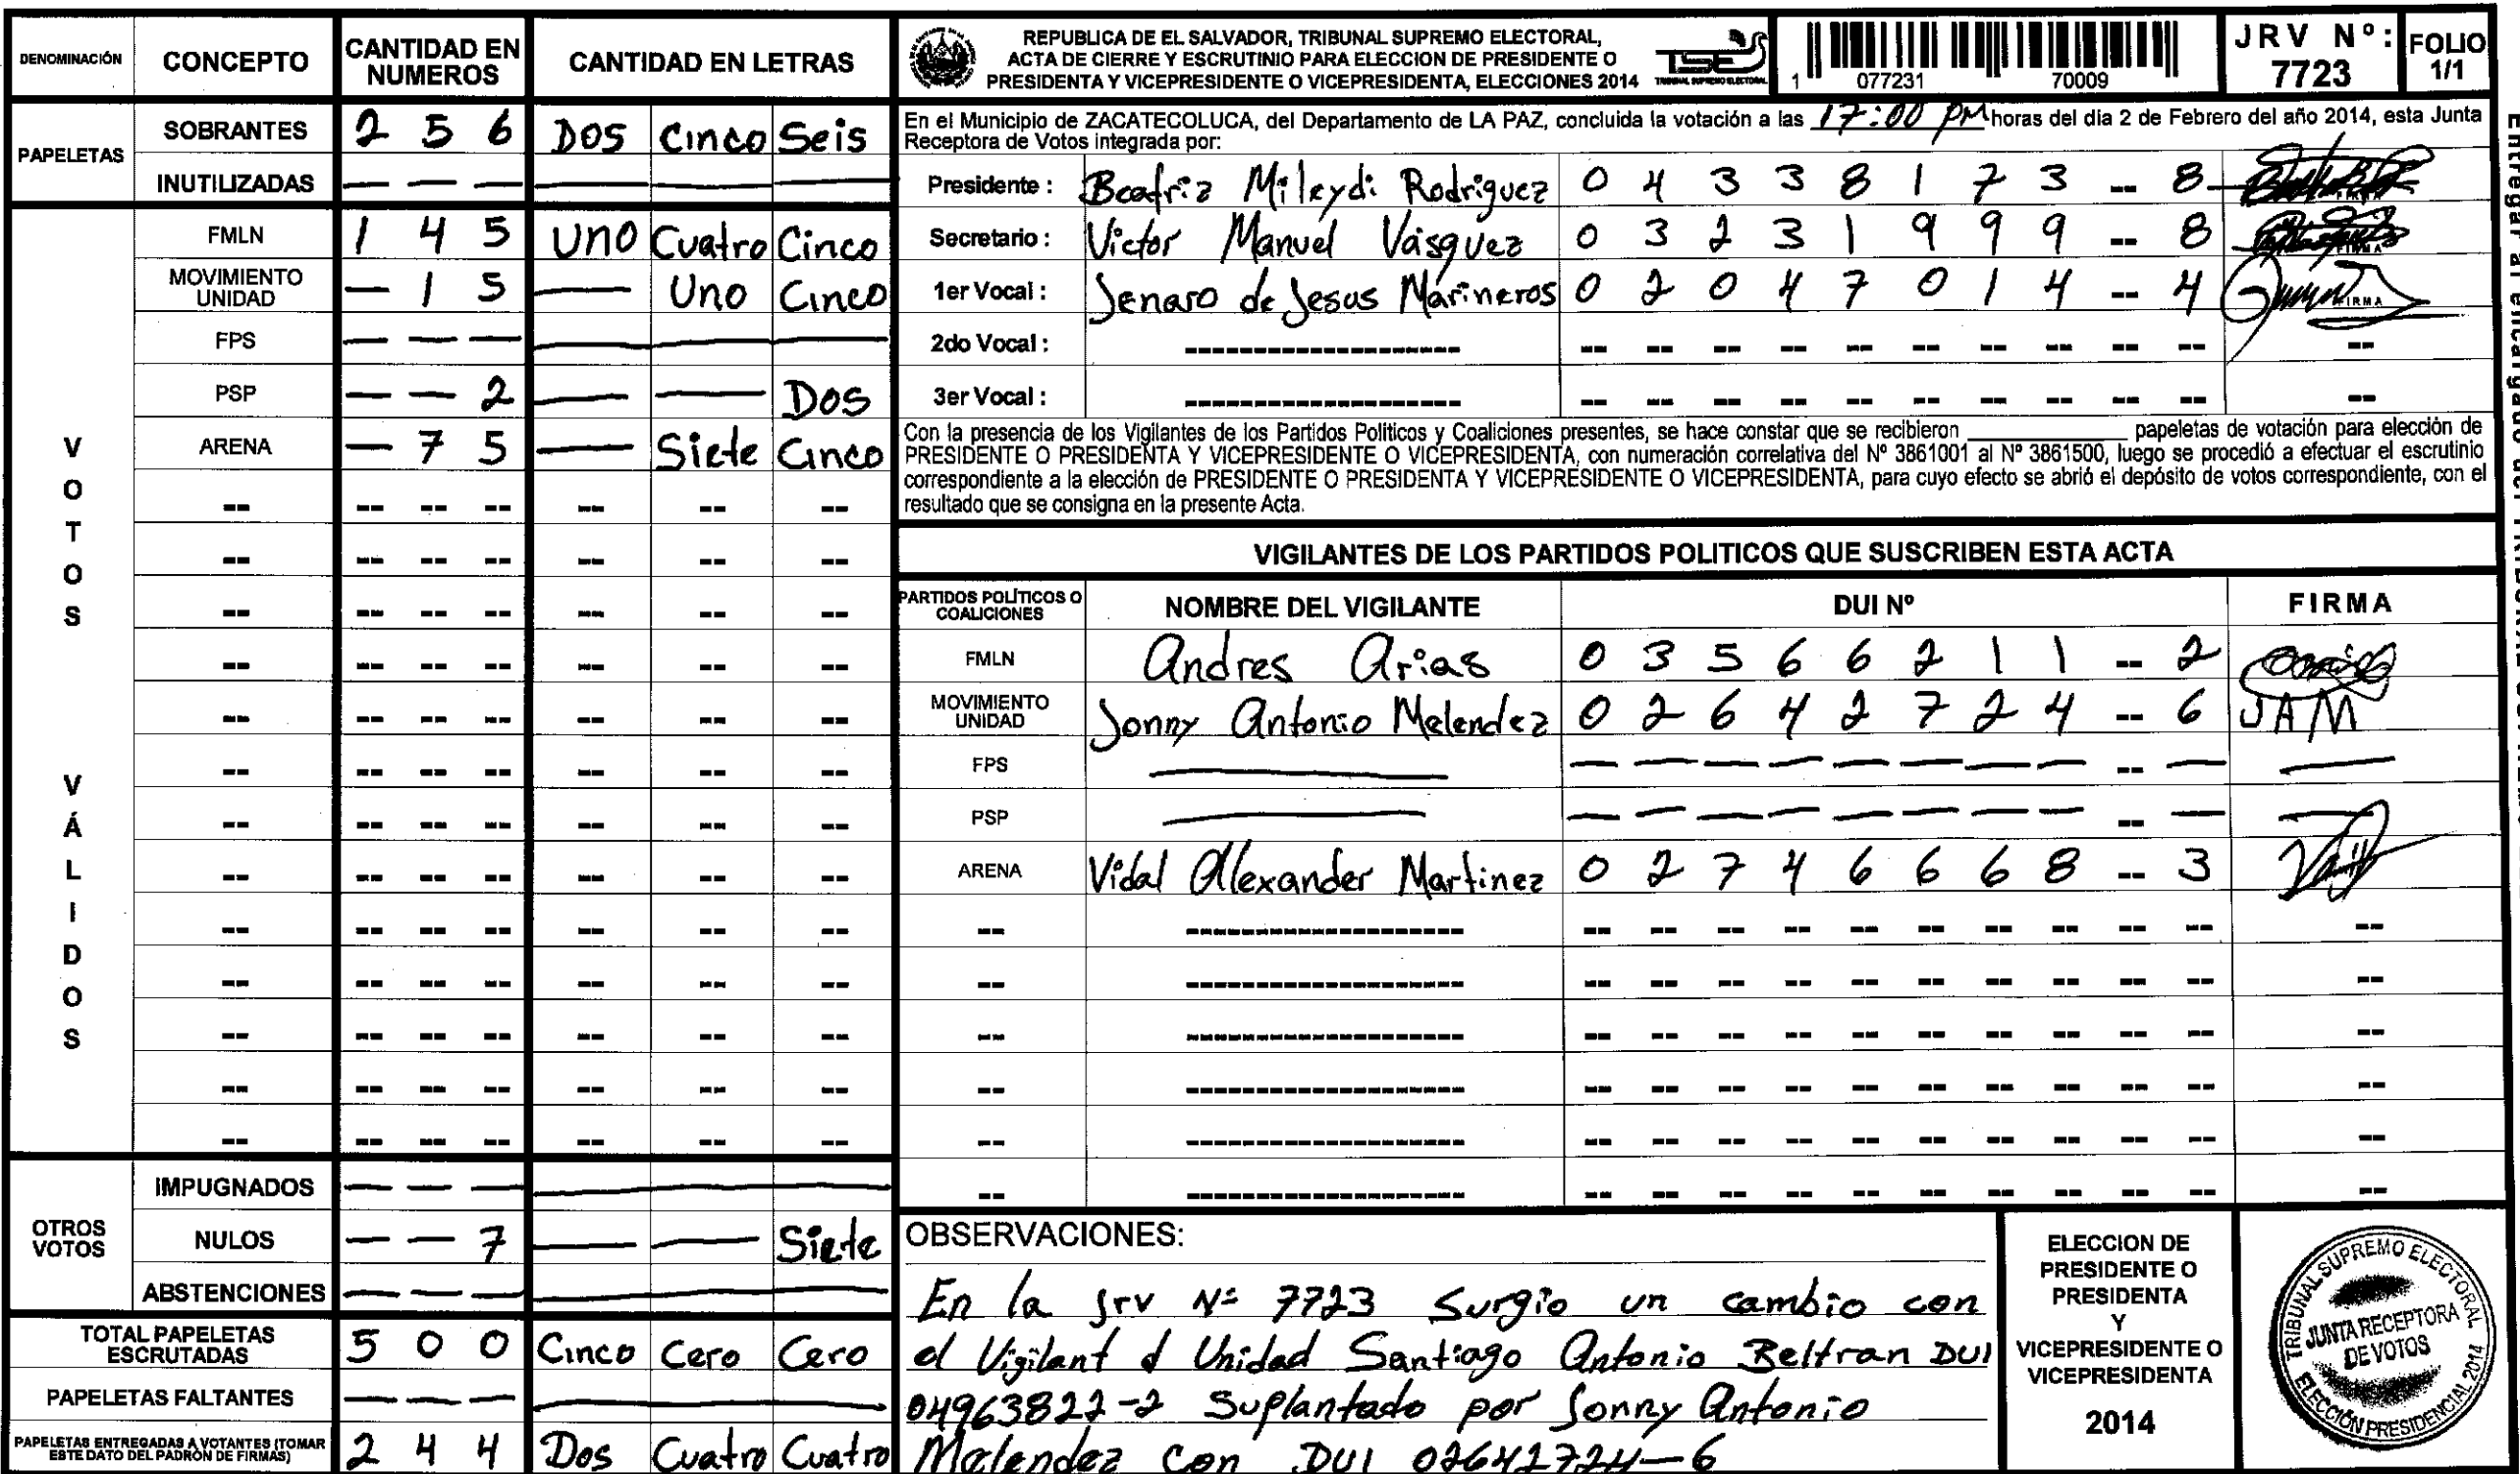 DENOMINACIÓN CONCEPTO CANTIDAD EN NUMEROS CANTIDAD EN LETRAS
PAPELETAS
SOBRANTES 2 5 6 DOS Cinco Seis
INUTILIZADAS — — — — — —
VOTOS VÁLIDOS
FMLN 1 4 5 UNO Cuatro Cinco
MOVIMIENTO UNIDAD — 1 5 — Uno Cinco
FPS — — — — — —
PSP — — 2 — — Dos
ARENA — 7 5 — Siete Cinco
-- -- -- -- -- -- --
-- -- -- -- -- -- --
-- -- -- -- -- -- --
-- -- -- -- -- -- --
-- -- -- -- -- -- --
-- -- -- -- -- -- --
-- -- -- -- -- -- --
-- -- -- -- -- -- --
-- -- -- -- -- -- --
-- -- -- -- -- -- --
-- -- -- -- -- -- --
-- -- -- -- -- -- --
-- -- -- -- -- -- --
OTROS VOTOS
IMPUGNADOS — — — — — —
NULOS — — 7 — — Siete
ABSTENCIONES — — — — — —
TOTAL PAPELETAS ESCRUTADAS 5 0 0 Cinco Cero Cero
PAPELETAS FALTANTES — — — — — —
PAPELETAS ENTREGADAS A VOTANTES (TOMAR ESTE DATO DEL PADRÓN DE FIRMAS) 2 4 4 Dos Cuatro Cuatro
REPUBLICA DE EL SALVADOR, TRIBUNAL SUPREMO ELECTORAL,
ACTA DE CIERRE Y ESCRUTINIO PARA ELECCION DE PRESIDENTE O
PRESIDENTA Y VICEPRESIDENTE O VICEPRESIDENTA, ELECCIONES 2014
TSE
TRIBUNAL SUPREMO ELECTORAL
1 077231 70009
JRV Nº: 7723
FOLIO 1/1
En el Municipio de ZACATECOLUCA, del Departamento de LA PAZ, concluida la votación a las 17:00 PM horas del día 2 de Febrero del año 2014, esta Junta
Receptora de Votos integrada por:
Presidente : Beatriz Mileydi Rodriguez 0 4 3 3 8 1 7 3 -- 8 FIRMA
Secretario : Victor Manuel Vásquez 0 3 2 3 1 9 9 9 -- 8 FIRMA
1er Vocal : Jenaro de Jesus Marineros 0 2 0 4 7 0 1 4 -- 4 FIRMA
2do Vocal : -------------------- -- -- -- -- -- -- -- -- -- -- --
3er Vocal : -------------------- -- -- -- -- -- -- -- -- -- -- --
Con la presencia de los Vigilantes de los Partidos Politicos y Coaliciones presentes, se hace constar que se recibieron ____________ papeletas de votación para elección de
PRESIDENTE O PRESIDENTA Y VICEPRESIDENTE O VICEPRESIDENTA, con numeración correlativa del Nº 3861001 al Nº 3861500, luego se procedió a efectuar el escrutinio
correspondiente a la elección de PRESIDENTE O PRESIDENTA Y VICEPRESIDENTE O VICEPRESIDENTA, para cuyo efecto se abrió el depósito de votos correspondiente, con el
resultado que se consigna en la presente Acta.
VIGILANTES DE LOS PARTIDOS POLITICOS QUE SUSCRIBEN ESTA ACTA
PARTIDOS POLÍTICOS O COALICIONES NOMBRE DEL VIGILANTE DUI Nº FIRMA
FMLN Andres Arias 0 3 5 6 6 2 1 1 -- 2
MOVIMIENTO UNIDAD Jonny Antonio Melendez 0 2 6 4 2 7 2 4 -- 6 JAM
FPS — — — — — — — — — -- — —
PSP — — — — — — — — — -- — —
ARENA Vidal Alexander Martinez 0 2 7 4 6 6 6 8 -- 3
-- -------------------- -- -- -- -- -- -- -- -- -- -- --
-- -------------------- -- -- -- -- -- -- -- -- -- -- --
-- -------------------- -- -- -- -- -- -- -- -- -- -- --
-- -------------------- -- -- -- -- -- -- -- -- -- -- --
-- -------------------- -- -- -- -- -- -- -- -- -- -- --
-- -------------------- -- -- -- -- -- -- -- -- -- -- --
OBSERVACIONES:
En la jrv Nº 7723 Surgio un cambio con
el Vigilant d Unidad Santiago Antonio Beltran DUI
04963822-2 Suplantado por Jonny Antonio
Melendez con DUI 02642724-6
ELECCION DE
PRESIDENTE O
PRESIDENTA
Y
VICEPRESIDENTE O
VICEPRESIDENTA
2014
TRIBUNAL SUPREMO ELECTORAL
JUNTA RECEPTORA
DE VOTOS
ELECCIÓN PRESIDENCIAL 2014